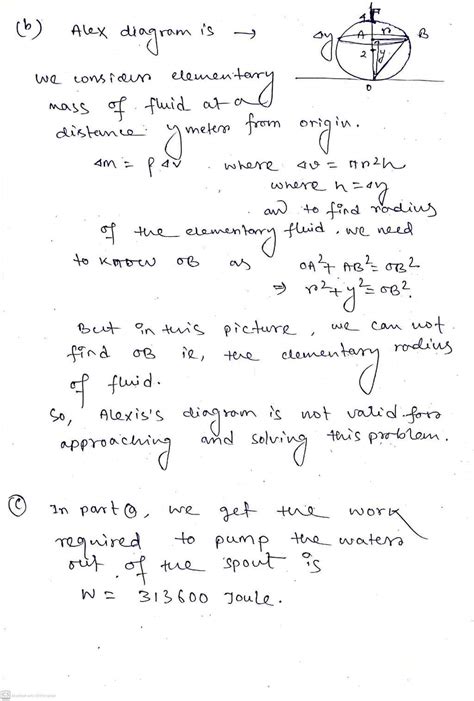 (b) Alex diagram is →
Δy A r B
2 y
0
we consider elementary
mass of fluid at a
distance y meter from origin.
Δm = ρ Δv where Δv = πr²h
where h = Δy
and to find radius
of the elementary fluid. we need
to know OB as OA² + AB² = OB²
⇒ r² + y² = OB².
But in this picture, we can not
find OB ie, the elementary radius
of fluid.
So, Alexis's diagram is not valid for
approaching and solving this problem.
(c) In part (a), we get the work
required to pump the water
out of the spout is
W = 313600 Joule.